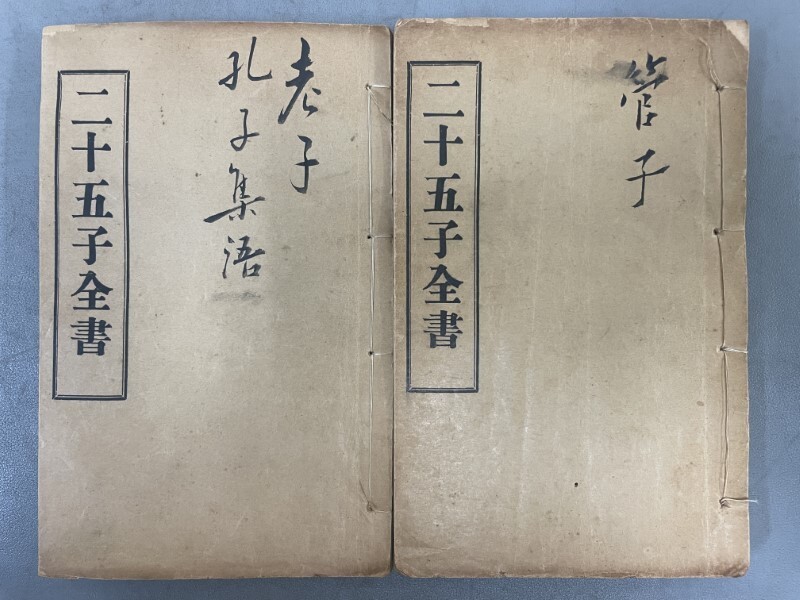 老子
孔子集语
二十五子全書
管子
二十五子全書